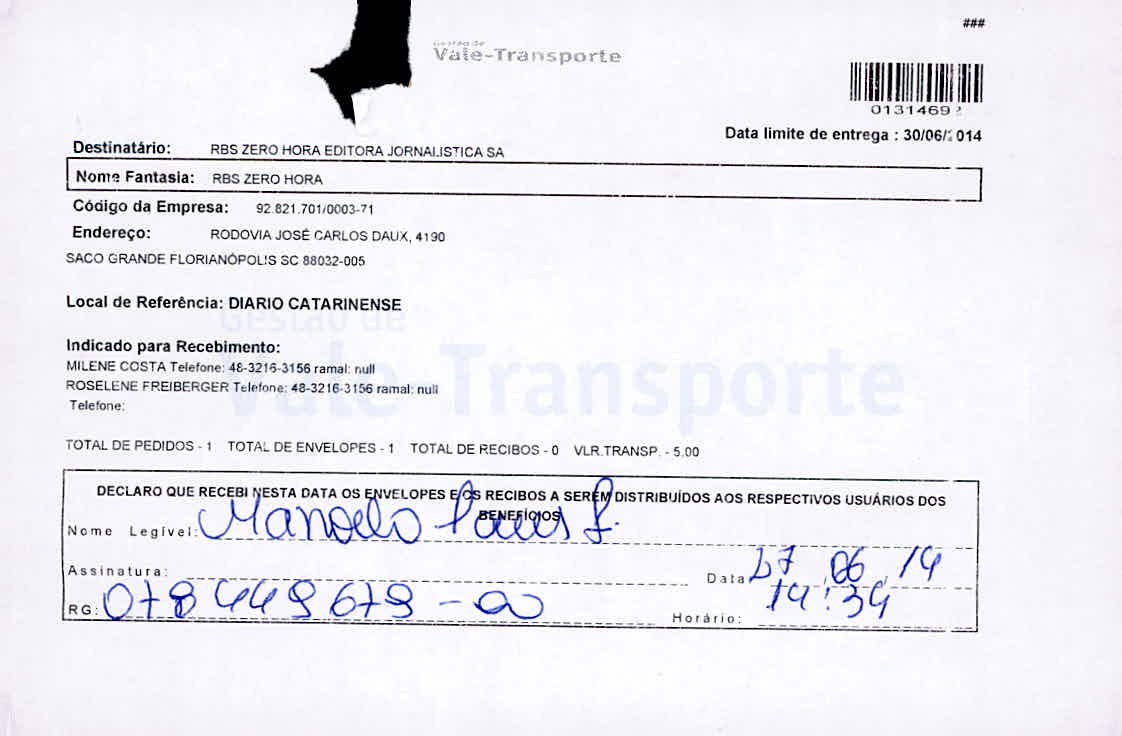 ###
Gestão de
Vale-Transporte
0131469
Data limite de entrega : 30/06/2014
Destinatário: RBS ZERO HORA EDITORA JORNALISTICA SA
Nome Fantasia: RBS ZERO HORA
Código da Empresa: 92.821.701/0003-71
Endereço: RODOVIA JOSÉ CARLOS DAUX, 4190
SACO GRANDE FLORIANÓPOLIS SC 88032-005
Local de Referência: DIARIO CATARINENSE
Gestão de
Vale-Transporte
Indicado para Recebimento:
MILENE COSTA Telefone: 48-3216-3156 ramal: null
ROSELENE FREIBERGER Telefone: 48-3216-3156 ramal: null
Telefone:
TOTAL DE PEDIDOS - 1 TOTAL DE ENVELOPES - 1 TOTAL DE RECIBOS - 0 VLR.TRANSP. - 5.00
DECLARO QUE RECEBI NESTA DATA OS ENVELOPES E/OS RECIBOS A SEREM DISTRIBUÍDOS AOS RESPECTIVOS USUÁRIOS DOS
BENEFÍCIOS
Nome Legível:
Assinatura: Data 27/06/14
RG: 078449679-00 Horário: 14:34